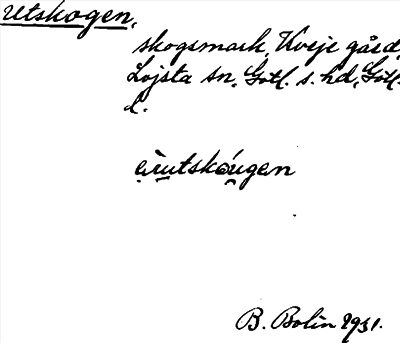 Utskogen,
skogsmark, Kveje gård,
Lojsta sn, Gotl. s. hd, Gotl.
l.
èutskóugen
B. Bolin 1931.